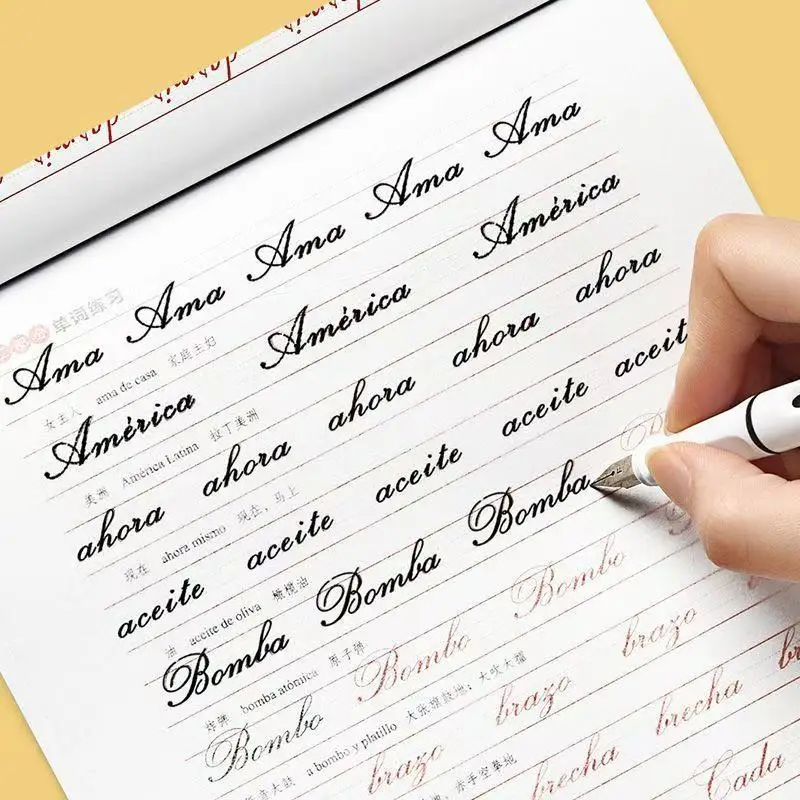 单词练习
Ama Ama Ama Ama Ama
女主人 ama de casa 家庭主妇
América América América
美洲 América Latina 拉丁美洲
ahora ahora ahora ahora ahora
现在 ahora mismo 现在，马上
aceite aceite aceite aceite aceit
油 aceite de oliva 橄榄油
Bomba Bomba Bomba
炸弹 bomba atómica 原子弹
Bombo Bombo Bombo
a bombo y platillo 大张旗鼓地；大吹大擂
brazo brazo brazo br
赤手空拳地
brecha brecha
Cada